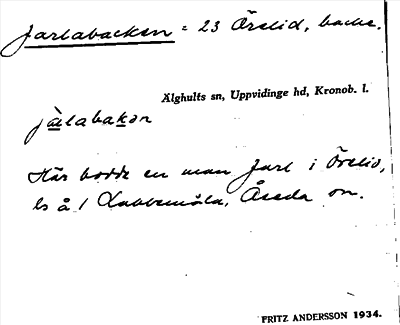 Jarlabacken = 23 Örelid, backe.
Älghults sn, Uppvidinge hd, Kronob. l.
jàlabakən
Här bodde en man Jarl i Örelid,
ls å 1 Labbemåla, Åseda sn.
FRITZ ANDERSSON 1934.